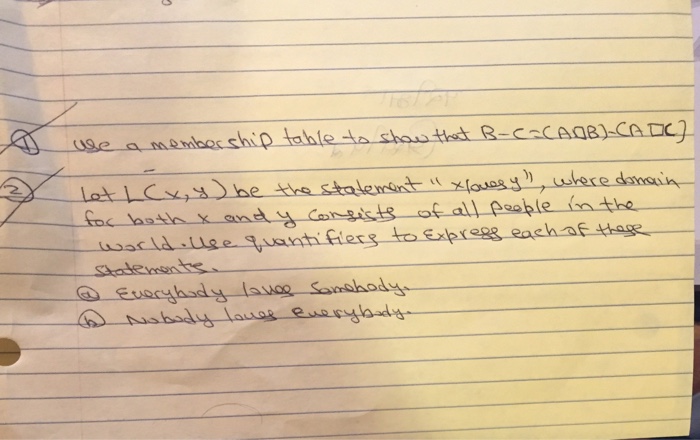 ① use a membership table to show that B-C=(A∩B)-(A∩C)
② Let L(x,y) be the statement "x loves y", where domain
for both x and y consists of all people in the
world. Use quantifiers to express each of these
statements.
ⓐ Everybody loves Somebody.
ⓑ Nobody loves Everybody.